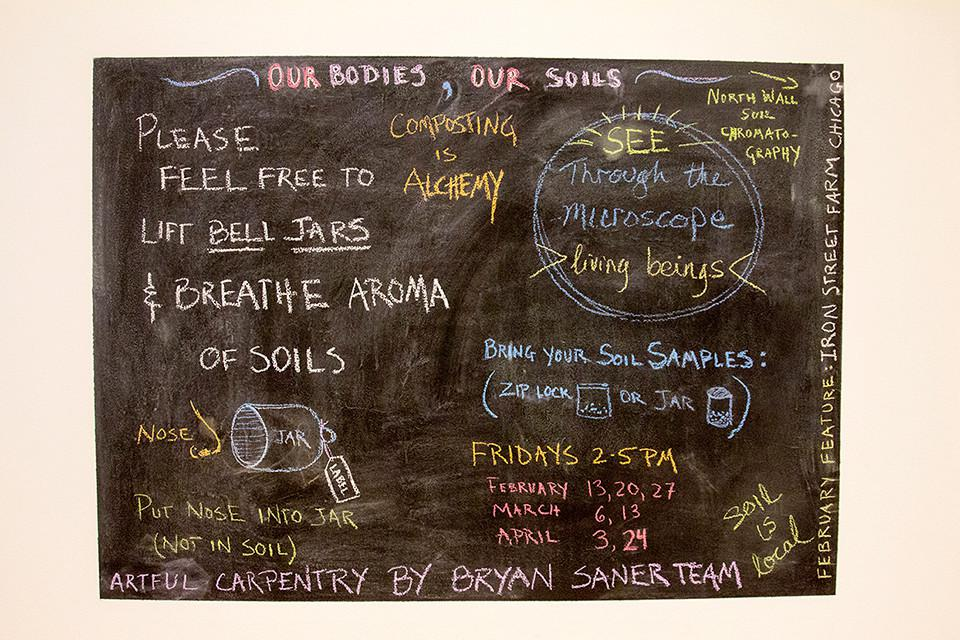 OUR BODIES, OUR SOILS
PLEASE
FEEL FREE TO
LIFT BELL JARS
& BREATHE AROMA
OF SOILS
NOSE
JAR
LABEL
PUT NOSE INTO JAR
(NOT IN SOIL)
COMPOSTING
IS
ALCHEMY
SEE
Through the
microscope
living beings
NORTH WALL
SOIL
CHROMATO-
GRAPHY
BRING YOUR SOIL SAMPLES:
(ZIP LOCK OR JAR)
FRIDAYS 2-5PM
FEBRUARY 13, 20, 27
MARCH 6, 13
APRIL 3, 24
SOIL
IS
local
FEBRUARY FEATURE: IRON STREET FARM CHICAGO
ARTFUL CARPENTRY BY BRYAN SANER TEAM